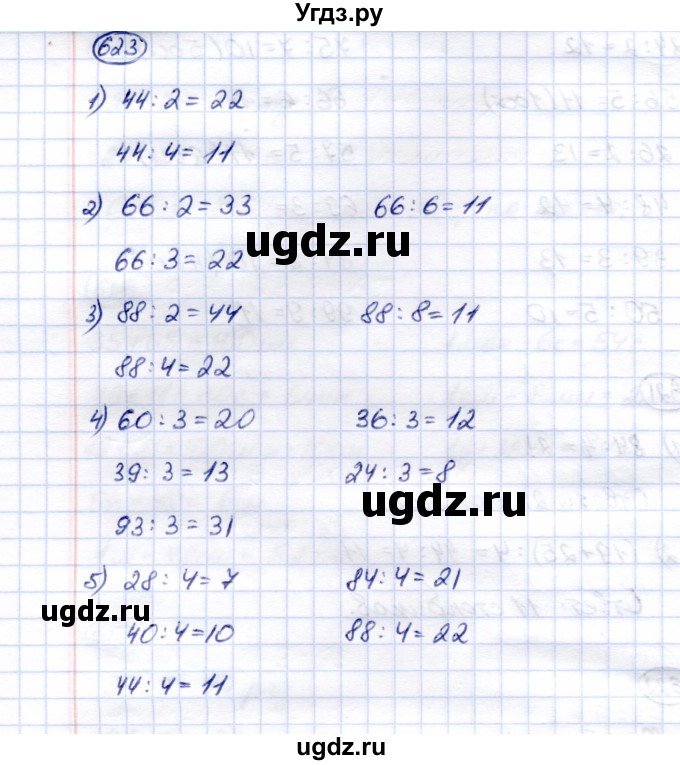 Угдз.ру
623
1) 44 : 2 = 22
44 : 4 = 11
2) 66 : 2 = 33 66 : 6 = 11
ugdz.ru
66 : 3 = 22
3) 88 : 2 = 44 88 : 8 = 11
88 : 4 = 22
4) 60 : 3 = 20 36 : 3 = 12
39 : 3 = 13 24 : 3 = 8
ugdz.ru
93 : 3 = 31
5) 28 : 4 = 7 84 : 4 = 21
ugdz.ru
40 : 4 = 10 88 : 4 = 22
44 : 4 = 11
ugdz.ru